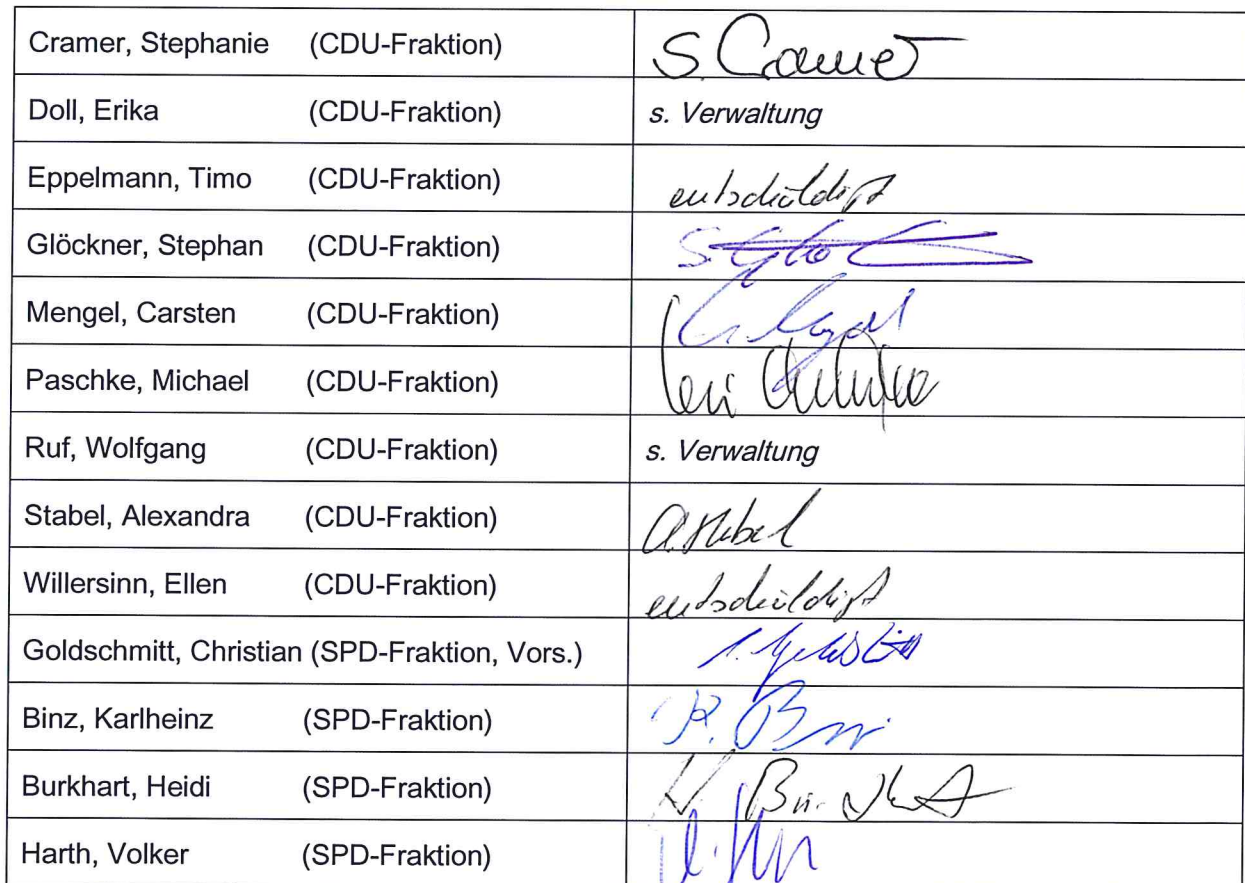 Cramer, Stephanie (CDU-Fraktion) S. Cramer
Doll, Erika (CDU-Fraktion) s. Verwaltung
Eppelmann, Timo (CDU-Fraktion) entschuldigt
Glöckner, Stephan (CDU-Fraktion)
Mengel, Carsten (CDU-Fraktion)
Paschke, Michael (CDU-Fraktion)
Ruf, Wolfgang (CDU-Fraktion) s. Verwaltung
Stabel, Alexandra (CDU-Fraktion) A. Stabel
Willersinn, Ellen (CDU-Fraktion) entschuldigt
Goldschmitt, Christian (SPD-Fraktion, Vors.)
Binz, Karlheinz (SPD-Fraktion)
Burkhart, Heidi (SPD-Fraktion)
Harth, Volker (SPD-Fraktion)